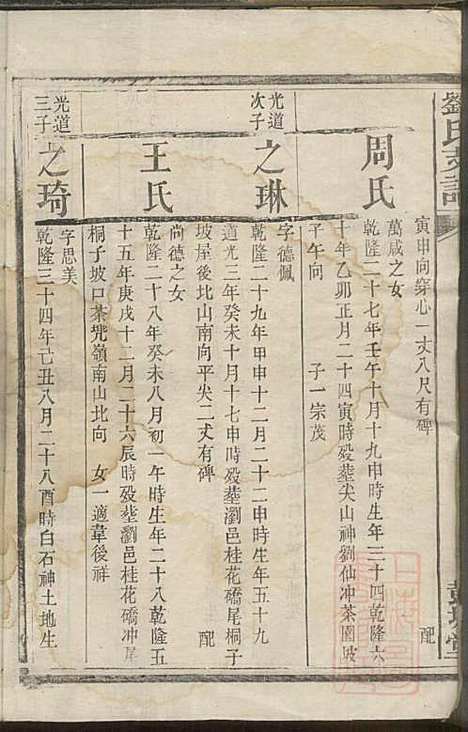 劉氏支譜
寅申向穿心一丈八尺有碑
配
周氏
萬咸之女
乾隆二十七年壬午十月十九申時生年三十四乾隆六
十年乙卯正月二十四寅時歿塟尖山神劉仙冲茶園坡
子午向
子一宗茂
光道次子
之琳
字德佩
乾隆二十九年甲申十二月二十二申時生年五十九
道光三年癸未十月十七申時歿塟瀏邑桂花礄尾桐子
坡屋後比山南向平尖二丈有碑
配
王氏
尚德之女
乾隆二十八年癸未八月初一午時生年二十八乾隆五
十五年庚戌十二月二十六辰時歿塟瀏邑桂花礄冲尾
桐子坡口茶兜嶺南山北向
女一適韋後祥
光道三子
之琦
字思美
乾隆三十四年己丑八月二十八酉時白石神土地生